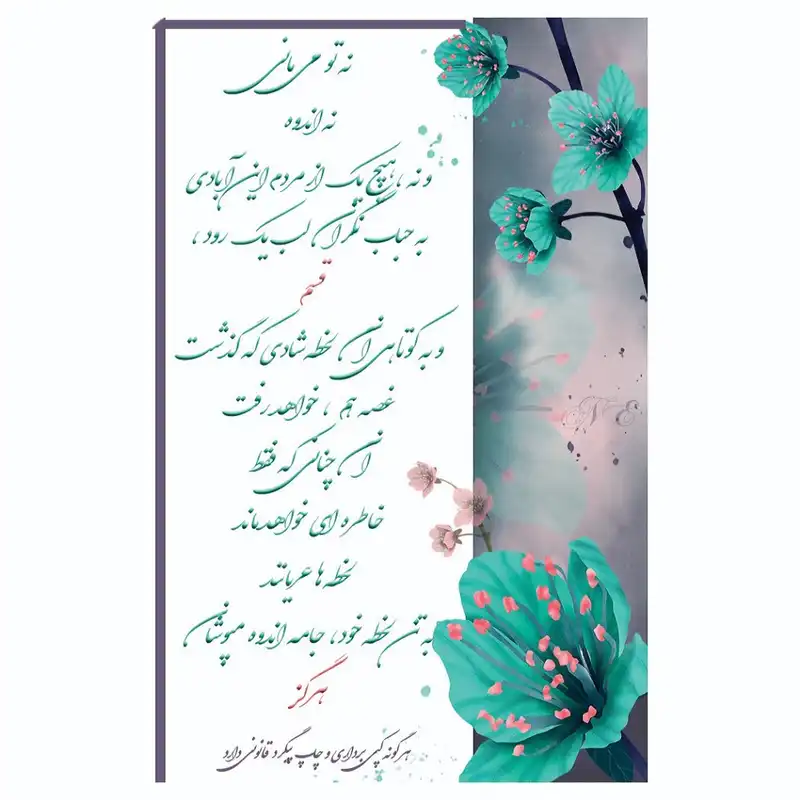 نه تو می مانی
نه اندوه
و نه ، هیچ یک از مردم این آبادی
به حباب نگران لب یک رود ،
قسم
و به کوتاهی ان لحظه شادی که گذشت
غصه هم ، خواهد رفت
ان چنانی که فقط
خاطره ای خواهد ماند
لحظه ها عریانند
به تن لحظه خود، جامه اندوه مپوشان
هرگز
هرگونه کپی برداری و چاپ پیگرد قانونی دارد
N E